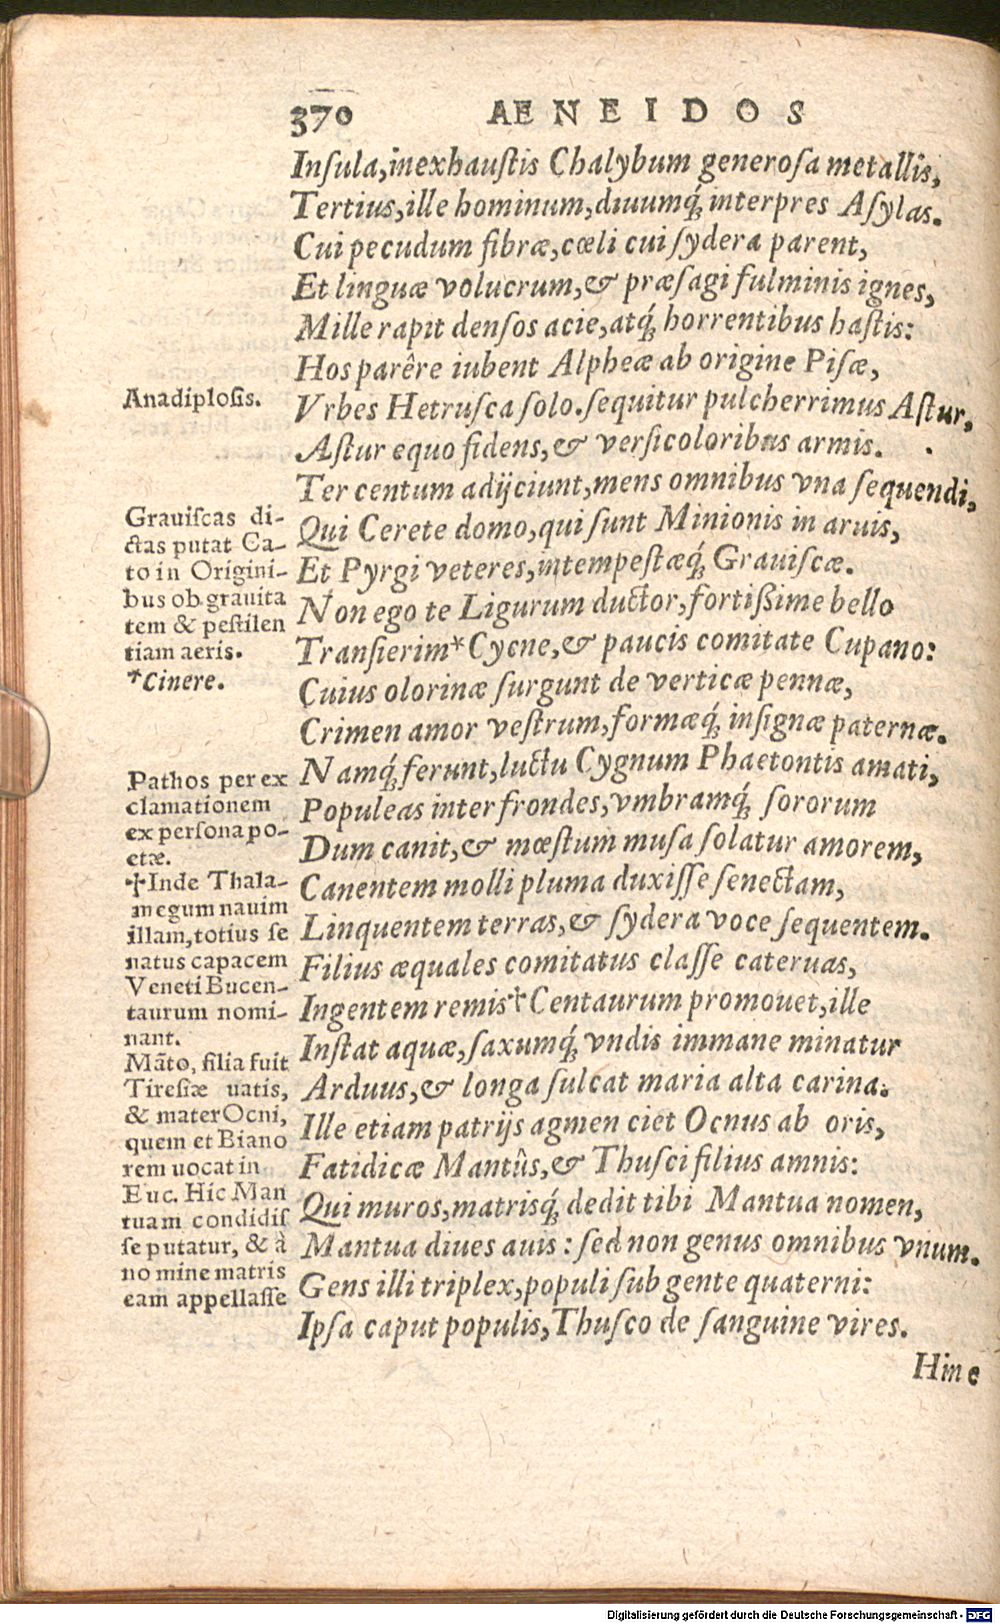 370 AENEIDOS
Inſula, inexhauſtis Chalybum generoſa metallis,
Tertius, ille hominum, diuumq́; interpres Aſylas.
Cui pecudum fibræ, cœli cui ſydera parent,
Et linguæ volucrum, & præſagi fulminis ignes,
Mille rapit denſos acie, atq́; horrentibus haſtis:
Hos parêre iubent Alpheæ ab origine Piſæ,
Vrbes Hetruſca ſolo. ſequitur pulcherrimus Aſtur,
Aſtur equo fidens, & verſicoloribus armis.
Ter centum adijciunt, mens omnibus vna ſequendi,
Qui Cerete domo, qui ſunt Minionis in aruis,
Et Pyrgi veteres, intempeſtæq́; Grauiſcæ.
Non ego te Ligurum ductor, fortißime bello
Tranſierim* Cycne, & paucis comitate Cupano:
Cuius olorinæ ſurgunt de verticæ pennæ,
Crimen amor veſtrum, formæq́; inſignæ paternæ.
Namq́; ferunt, luctu Cygnum Phaetontis amati,
Populeas inter frondes, vmbramq́; ſororum
Dum canit, & mœſtum muſa ſolatur amorem,
Canentem molli pluma duxiſſe ſenectam,
Linquentem terras, & ſydera voce ſequentem.
Filius æquales comitatus claſſe cateruas,
Ingentem remis † Centaurum promouet, ille
Inſtat aquæ, ſaxumq́; vndis immane minatur
Arduus, & longa ſulcat maria alta carina.
Ille etiam patrijs agmen ciet Ocnus ab oris,
Fatidicæ Mantûs, & Thuſci filius amnis:
Qui muros, matrisq́; dedit tibi Mantua nomen,
Mantua diues auis: ſed non genus omnibus vnum.
Gens illi triplex, populi ſub gente quaterni:
Ipſa caput populis, Thuſco de ſanguine vires.
Hinc
Anadiploſis.
Grauiſcas di-
ctas putat Ca-
to in Origini-
bus ob grauita
tem & peſtilen
tiam aeris.
*Cinere.
Pathos per ex
clamationem
ex perſona po-
etæ.
†Inde Thala-
megum nauim
illam, totius ſe
natus capacem
Veneti Bucen-
taurum nomi-
nant.
Mãto, filia fuit
Tireſiæ uatis,
& mater Ocni,
quem et Biano
rem uocat in
Euc. Hic Man
tuam condidiſ
ſe putatur, & à
no mine matris
eam appellaſſe
Digitalisierung gefördert durch die Deutsche Forschungsgemeinschaft - DFG